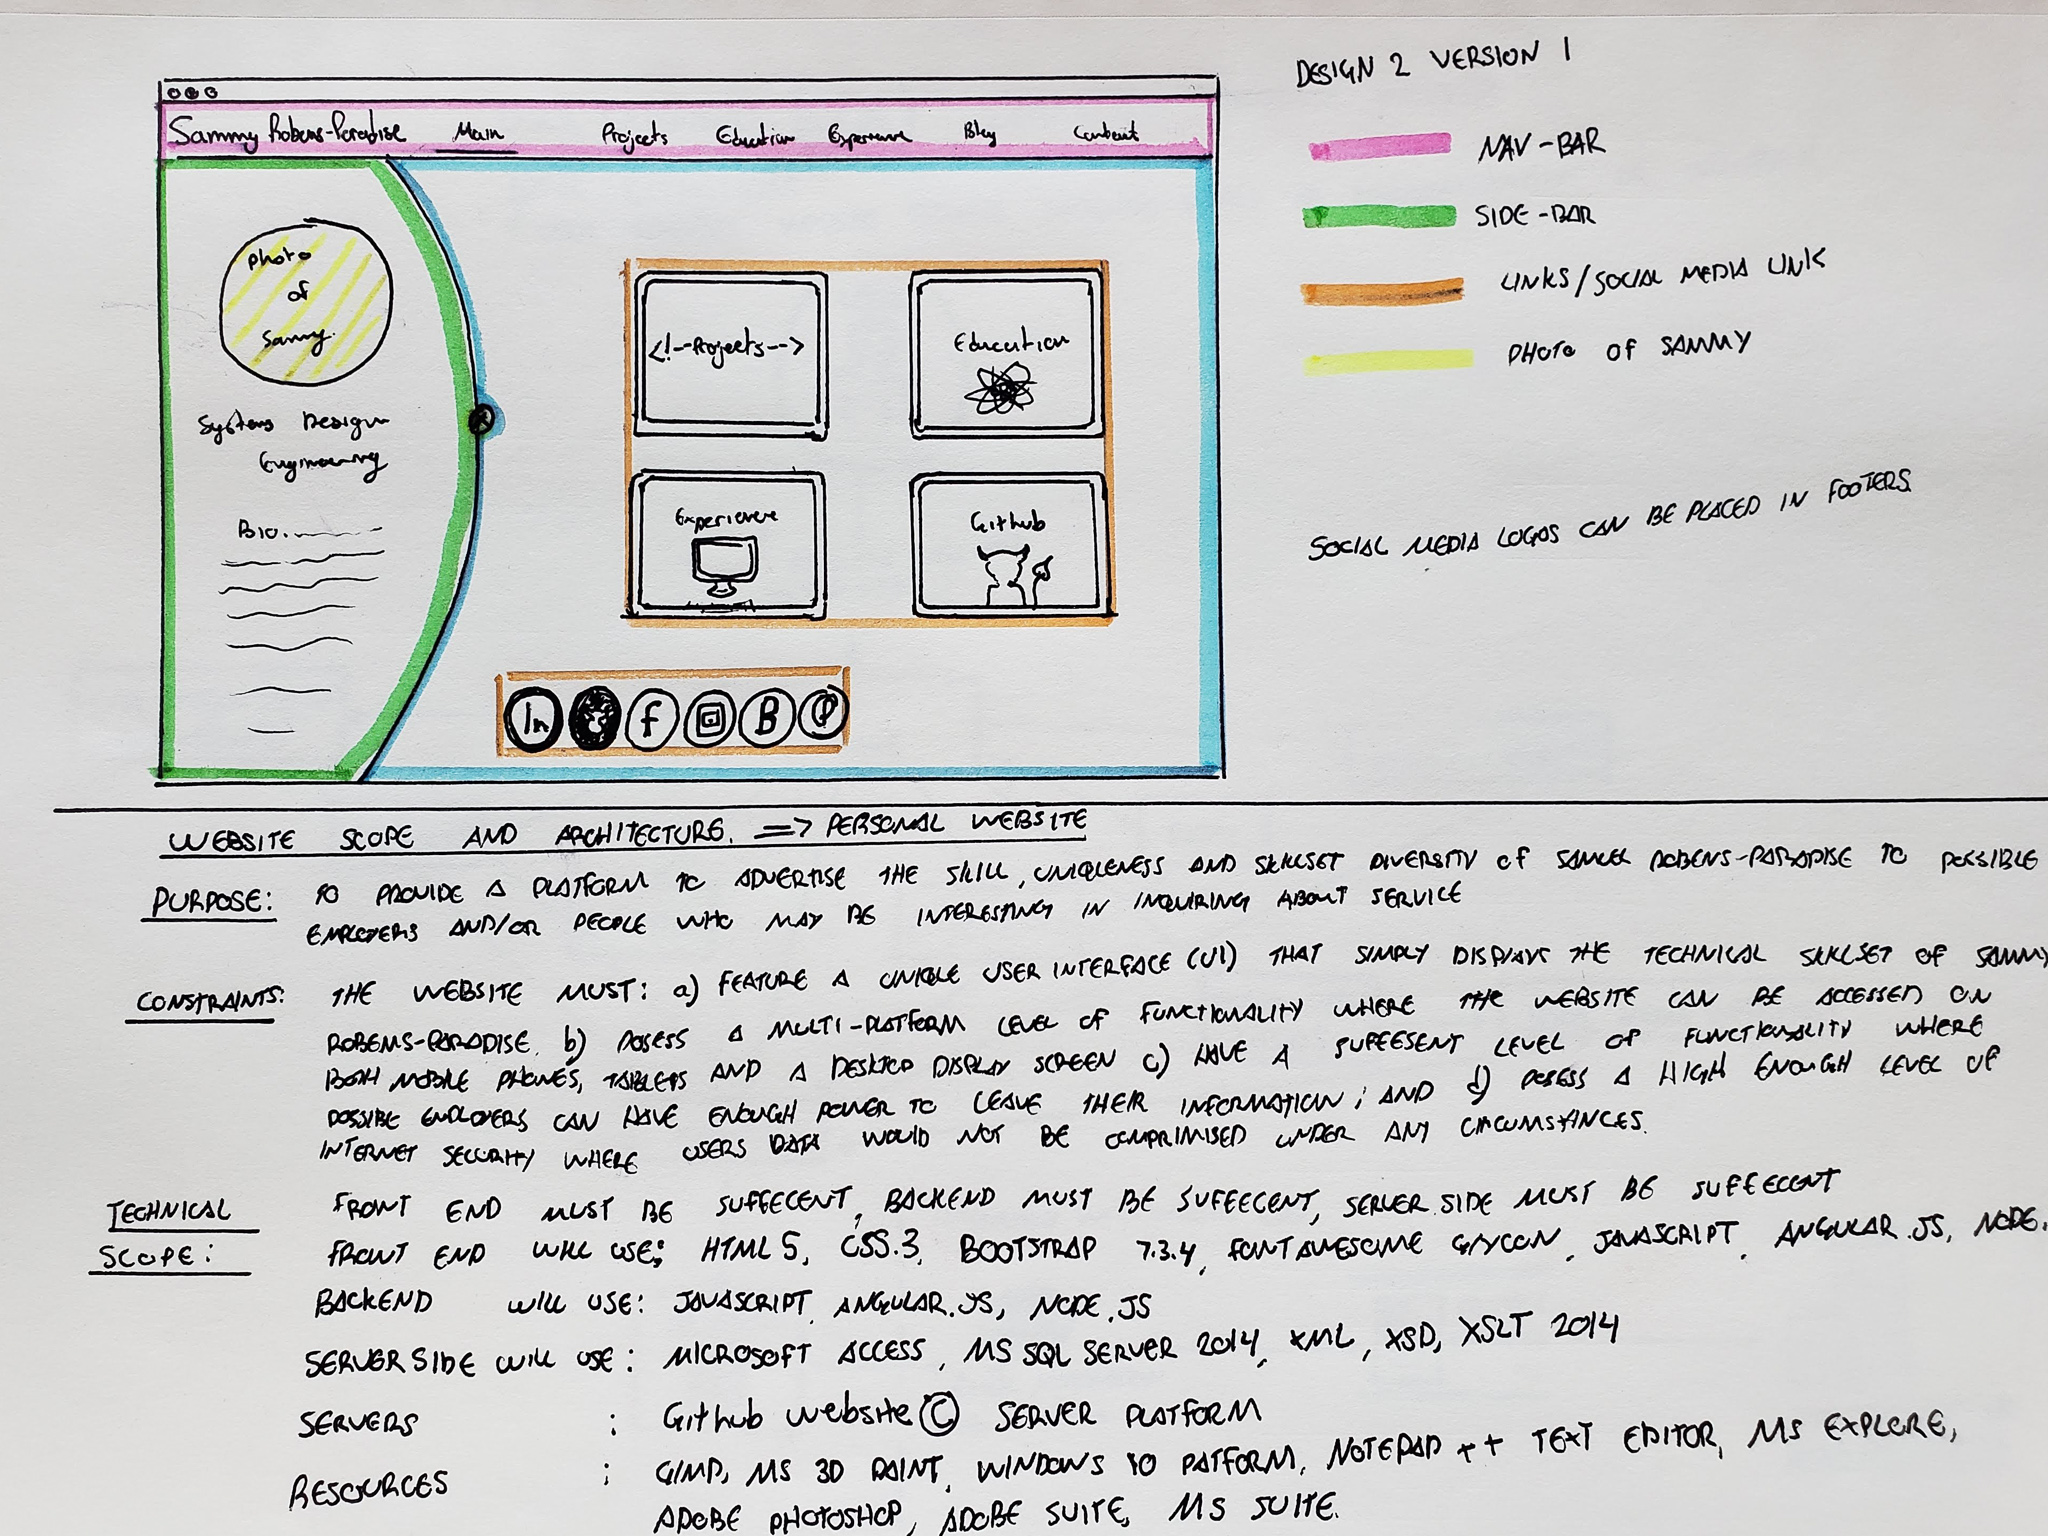 DESIGN 2 VERSION 1
Sammy Robens-Paradise Main Projects Education Experience Blog Contact
NAV-BAR
SIDE-BAR
LINKS/SOCIAL MEDIA LINK
PHOTO OF SAMMY
Photo
of
Sammy.
Systems Design
Engineering
Bio.
<!--Projects-->
Education
Experience
Github
In f B
SOCIAL MEDIA LOGOS CAN BE PLACED IN FOOTERS.
WEBSITE SCOPE AND ARCHITECTURE. => PERSONAL WEBSITE
PURPOSE: TO PROVIDE A PLATFORM TO ADVERTISE THE SKILL, UNIQLENESS AND SKILLSET DIVERSITY OF ROBENS-PARADISE TO POSSIBLE
EMPLOYERS AND/OR PEOPLE WHO MAY BE INTERESTING IN INQUIRING ABOUT SERVICE
CONSTRAINTS: THE WEBSITE MUST: a) FEATURE A UNIQUE USER INTERFACE (UI) THAT SIMPLY DISPLAYS THE TECHNICAL SKILLSET OF SAMMY
ROBENS-PARADISE. b) POSESS A MULTI-PLATFORM LEVEL OF FUNCTIONALITY WHERE THE WEBSITE CAN BE ACCESSED ON
BOTH MOBILE PHONES, TABLETS AND A DESKTOP DISPLAY SCREEN c) HAVE A SUFFESENT LEVEL OF FUNCTIONALITY WHERE
POSSIBE EMPLOYERS CAN HAVE ENOUGH POWER TO LEAVE THEIR INFORMATION; AND d) POSESS A HIGH ENOUGH LEVEL OF
INTERNET SECURITY WHERE USERS DATA WOULD NOT BE COMPRIMISED UNDER ANY CIRCUMSTANCES.
TECHNICAL FRONT END MUST BE SUFFECENT, BACKEND MUST BE SUFFECENT, SERVER SIDE MUST BE SUFFECENT
SCOPE: FRONT END WILL USE: HTML 5, CSS.3, BOOTSTRAP 7.3.4, FONTAWESOME GLYCON, JAVASCRIPT, ANGULAR.JS, NODE.
BACKEND WILL USE: JAVASCRIPT, ANGULAR.JS, NODE.JS
SERVER SIDE WILL USE: MICROSOFT ACCESS, MS SQL SERVER 2014, XML, XSD, XSLT 2014
SERVERS : Github website © SERVER PLATFORM
RESOURCES : GIMP, MS 3D PAINT, WINDOWS 10 PATFORM, NOTEPAD ++ TEXT EDITOR, MS EXPLORE,
ADOBE PHOTOSHOP, ADOBE SUITE, MS SUITE.